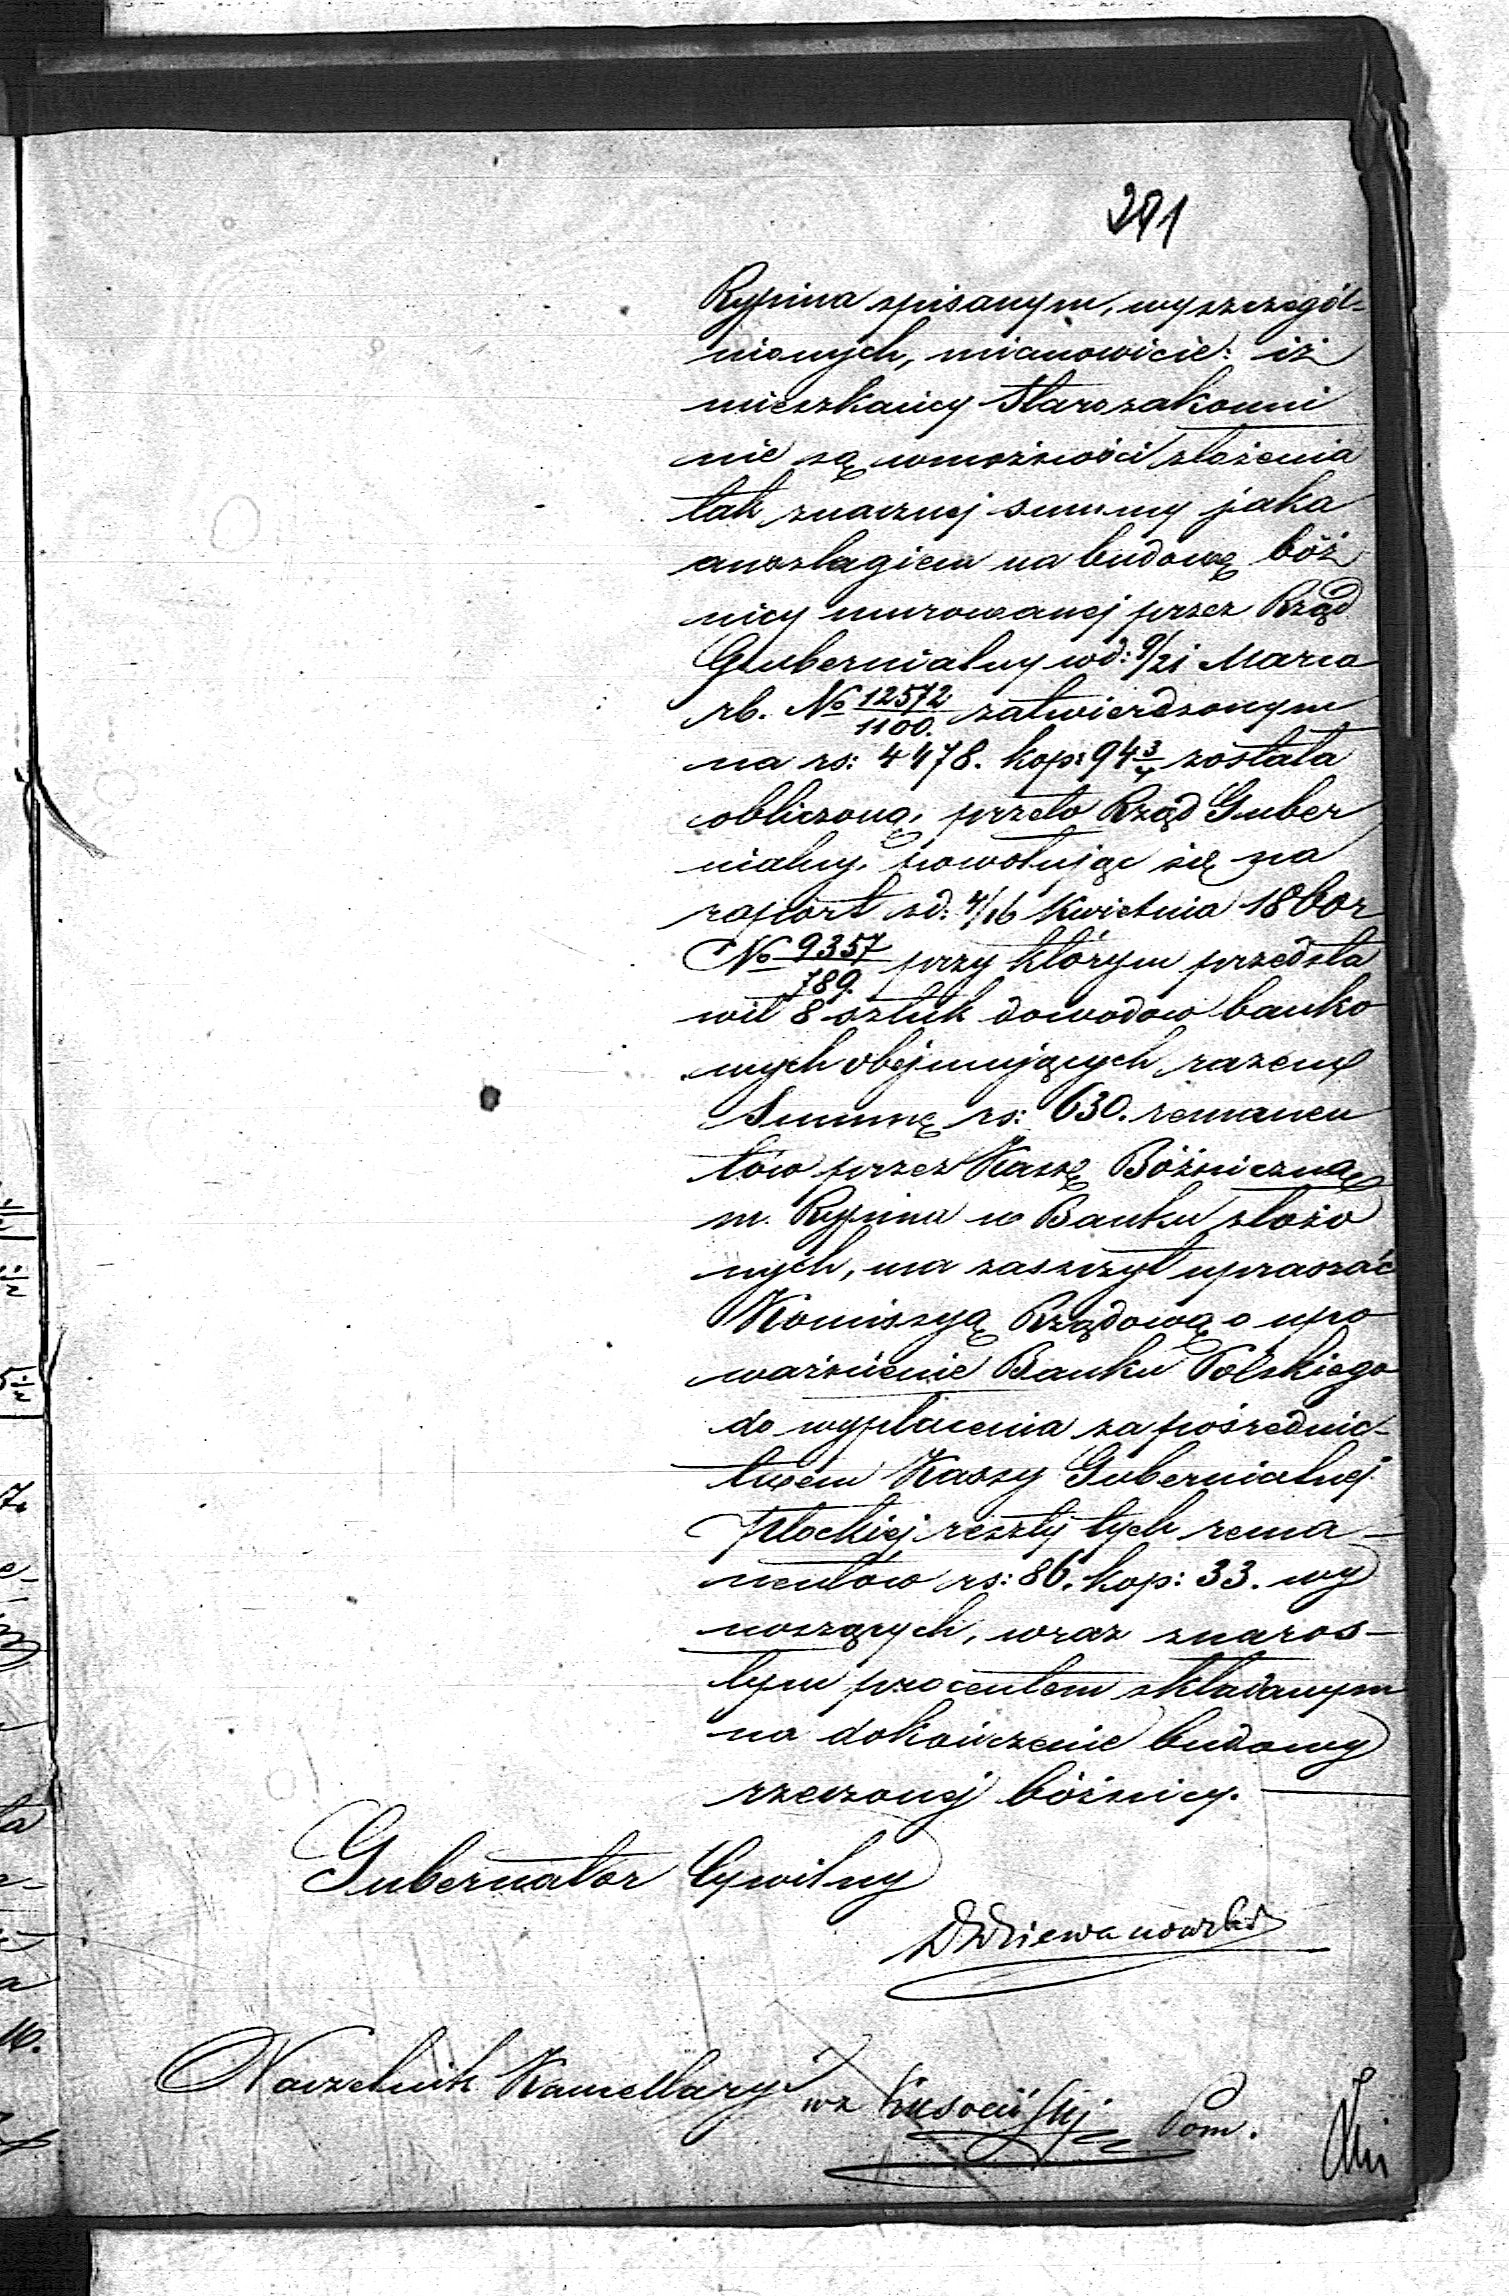 201
Rypina spisanym, wyszczegól-
nionych, mianowicie: iż
mieszkańcy Starozakonni
nie są wmożności złożenia
tak znacznej summy jaka
anszlagiem na budowę bóż
nicy murowanej przez Rząd
Gubernialny wd: 9/21 Marca
rb. No 12572/1100. zatwierdzonym
na rs: 4478. kop: 94 3/4 została
obliczoną, przeto Rząd Guber
nialny, powołując się na
raport zd: 4/16 Kwietnia 1860 r
No 9357/789. przy którym przedsta
wił 8 sztuk dowodow banko
wych obejmujących razem
Summę rs: 630. remanen
tów przez Kassę Bóżniczną
m. Rypina w Banku złożo
nych, ma zaszczyt upraszać
Kommissyą Rządową o upo
ważnienie Banku Polskiego
do wypłacenia za pośrednic-
twem Kassy Gubernialnej
Płockiej reszty tych rema-
nentów rs: 86. kop: 33. wy
noszących, wraz znaros-
łym procentem składanym
na dokończenie budowy
rzeczonej bóżnicy.
Gubernator Cywilny
Dziewanowski
Naczelnik Kancellaryi
wz Pom.